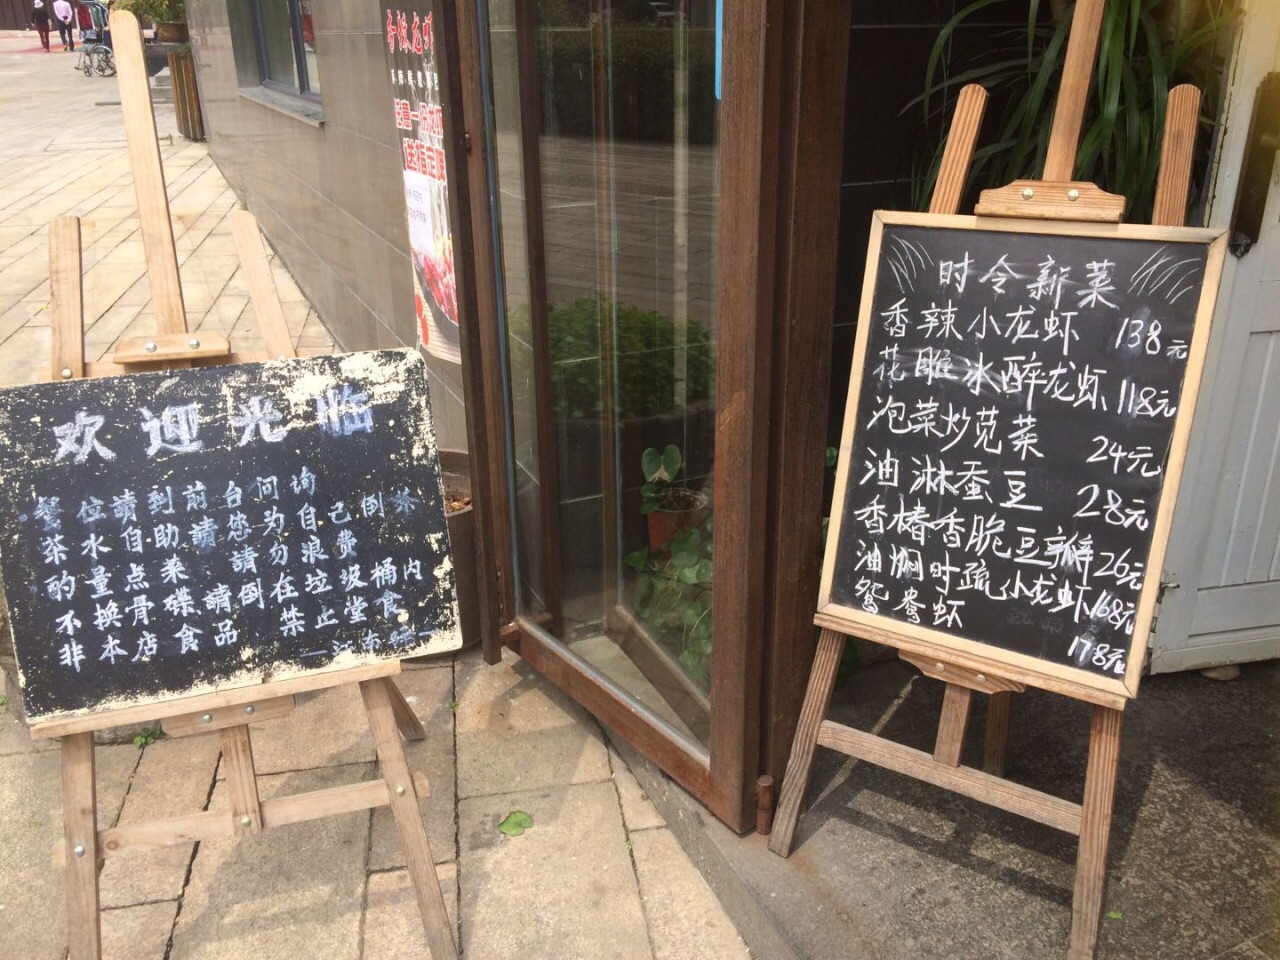 欢迎光临
餐位請到前台问询
茶水自助請您为自己倒茶
酌量点菜 請勿浪费
不换骨碟請倒在垃圾桶内
非本店食品 禁止堂食
时令新菜
香辣小龙虾 138元
花雕冰醉龙虾 118元
泡菜炒苋菜 24元
油淋蚕豆 28元
香椿香脆豆瓣 26元
油焖时蔬小龙虾 168元
鸳鸯虾 178元